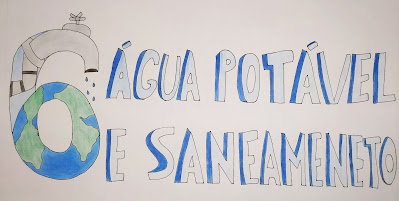 6 ÁGUA POTÁVEL
E SANEAMENETO